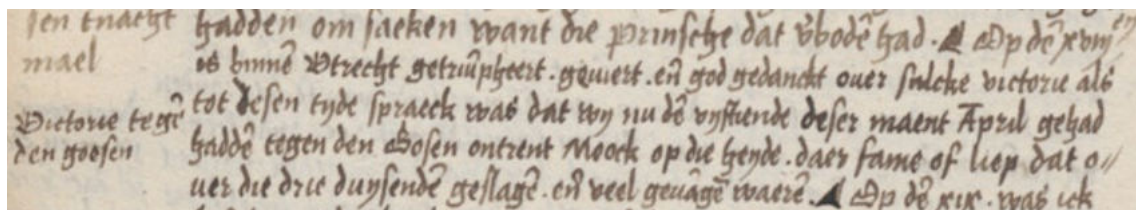 sen tnacht
mael
Victorie tegē
den goosen
hadden om saeken want die prinsche dat v̄bodē had. Op dē xviijen
is binnē Vtrecht getriūpheert. geviert. eñ god gedanckt over sulcke victorie als
tot desen tyde spraeck was dat wy nu dē vyftiende deser maent April gehad
haddē tegen den Gosen ontrent Moock op die heyde. daer fame of liep dat o//
uer die drie duysendē geslagē. eñ veel gevāgē waerē. Op dē xix. was ick